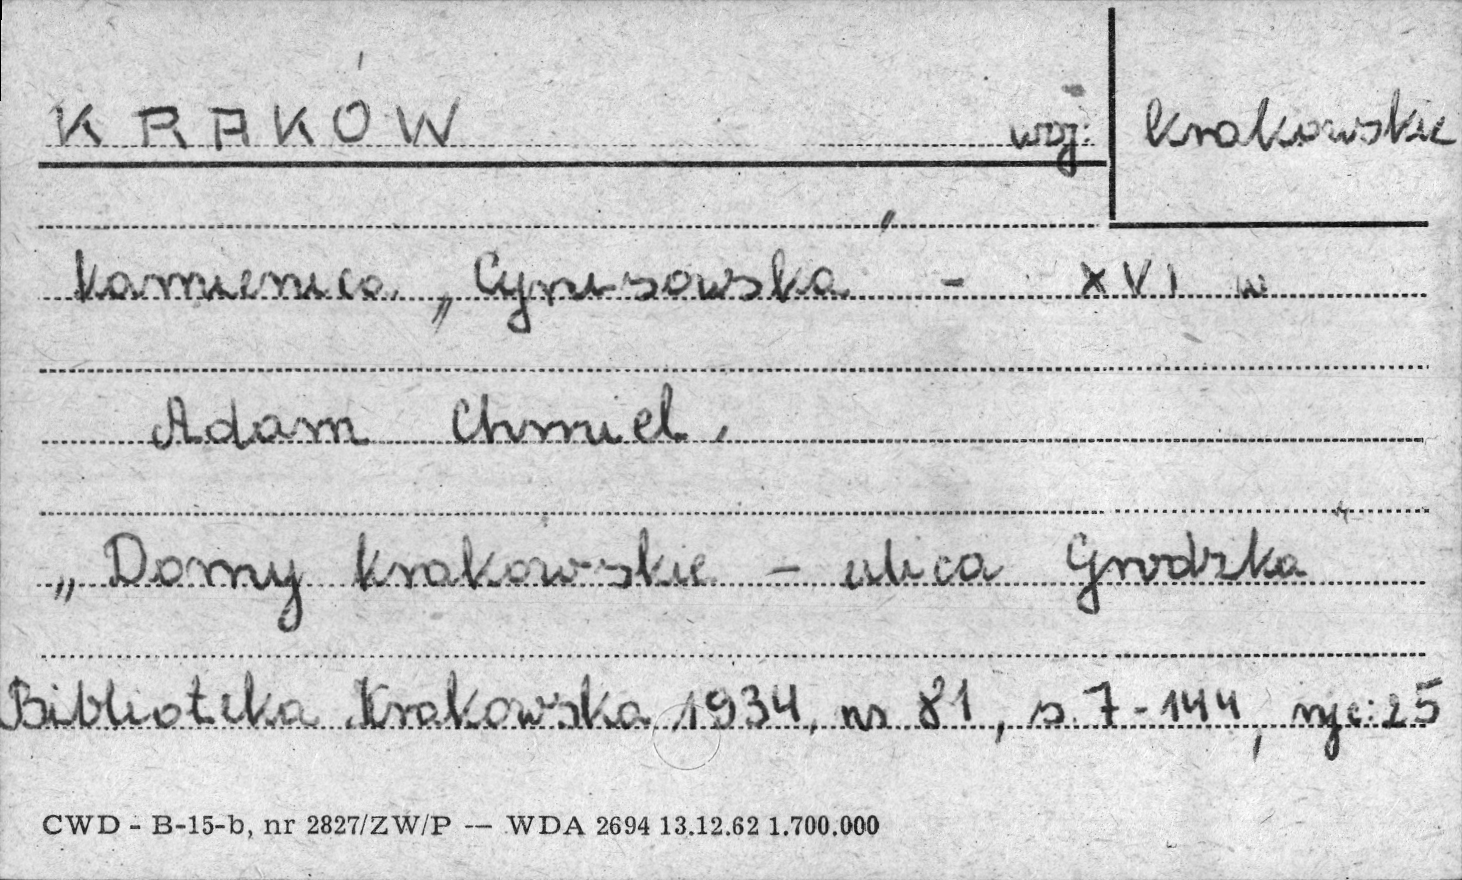 KRAKÓW woj: krakowskie
Kamienica „Cyrusowska" - XVI w
Adam Chmiel.
„Domy krakowskie - ulica Grodzka"
Biblioteka Krakowska 1934, nr 81, s. 7-144, ryc: 25
CWD - B-15-b, nr 2827/ZW/P — WDA 2694 13.12.62 1.700.000